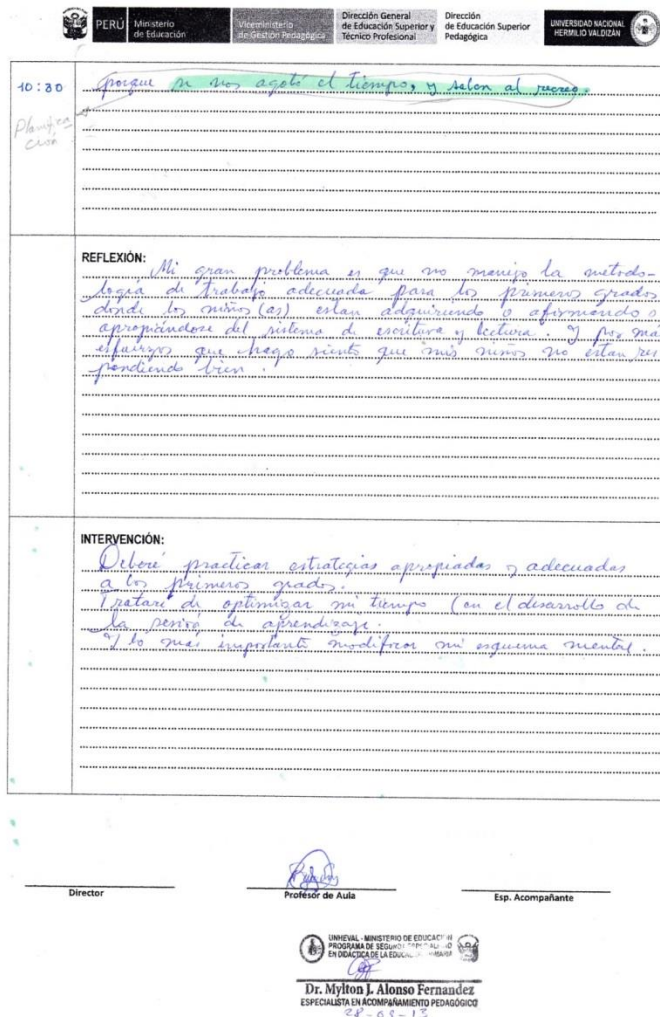 PERÚ
Ministerio
de Educación
Viceministerio
de Gestión Pedagógica
Dirección General
de Educación Superior y
Técnico Profesional
Dirección
de Educación Superior
Pedagógica
UNIVERSIDAD NACIONAL
HERMILIO VALDIZÁN
10:30
porque se nos agotó el tiempo, y salen al recreo.
Planifica
ción
REFLEXIÓN:
Mi gran problema es que no manejo la metodo-
logía de trabajo adecuada para los primeros grados
donde los niños (as) estan adquiriendo o afirmando o
apropiándose del sistema de escritura y lectura. Y por mas
esfuerzos que hago siento que mis niños no estan res
pondiendo bien.
INTERVENCIÓN:
Deberé practicar estrategias apropiadas y adecuadas
a los primeros grados.
Trataré de optimizar mi tiempo (en el desarrollo de
la sesión de aprendizaje.
Y lo mas importante modificar mi esquema mental.
Director
Profesor de Aula
Esp. Acompañante
UNHEVAL - MINISTERIO DE EDUCACIÓN
PROGRAMA DE SEGUNDA
EN DIDÁCTICA DE LA
Dr. Mylton J. Alonso Fernandez
ESPECIALISTA EN ACOMPAÑAMIENTO PEDAGÓGICO